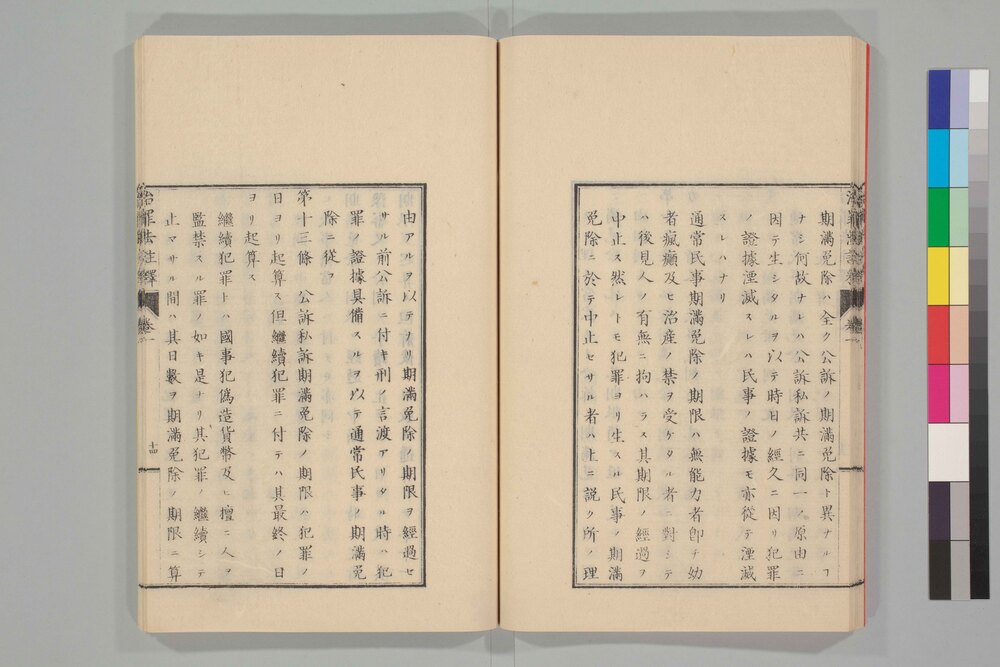 期滿免除ハ全ク公訴ノ期滿免除ト異ナルヿ
ナシ何故ナレハ公訴私訴共ニ同一ノ原由ニ
因テ生シタルヲ以テ時日ノ經久ニ因リ犯罪
ノ證據湮滅スレハ民事ノ證據モ亦從テ湮滅
スレハナリ
通常民事期滿免除ノ期限ハ無能力者卽チ幼
者瘋癲及ヒ治產ノ禁ヲ受ケタル者ニ對シテ
ハ後見人ノ有無ニ拘ハラス其期限ノ經過ヲ
中止ス然レトモ犯罪ヨリ生スル民事ノ期滿
免除ニ於テ中止セサル者ハ上ニ說ク所ノ理
由アルヲ以テナリ期滿免除ノ期限ヲ經過セ
サル前公訴ニ付キ刑ノ言渡アリタル時ハ犯
罪ノ證據具備スルヲ以テ通常民事ノ期滿免
除ニ從フ
第十三條 公訴私訴期滿免除ノ期限ハ犯罪ノ
日ヨリ起算ス但繼續犯罪ニ付テハ其最終ノ日
ヨリ起算ス
繼續犯罪トハ國事犯僞造貨幣及ヒ擅ニ人ヲ
監禁スル罪ノ如キ是ナリ其犯罪ノ繼續シテ
止マサル間ハ其日數ヲ期滿免除ノ期限ニ算
治罪法註釋 卷一
十四